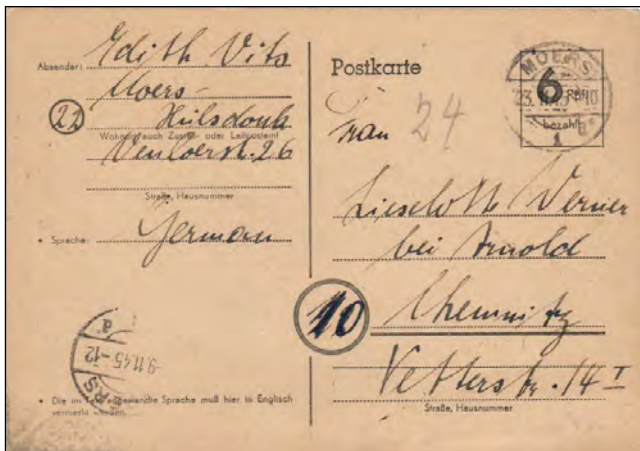 Absender: Edith Vits
Moers-
22
Hülsdonk
Wohnort, auch Zustell- oder Leitpostamt
Venloerstr. 26
Straße, Hausnummer
• Sprache: German
9.11.45-12
RS
• Die im Text angewandte Sprache muß hier in Englisch
vermerkt werden.
Postkarte
MOERS
6 Rpf
bezahlt
1
Frau 24
Lieselotte Verner
bei Arnold
10
Chemnitz
Vetterstr. 14 I
Straße, Hausnummer